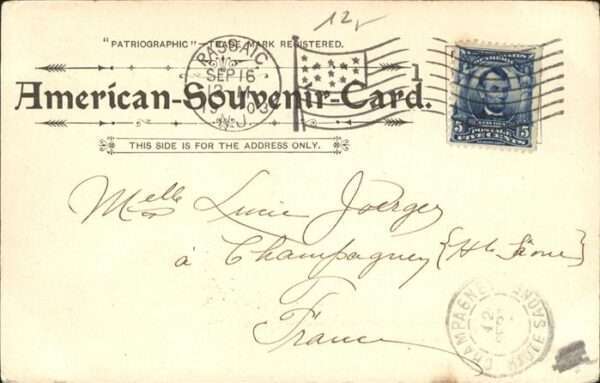 12
"PATRIOGRAPHIC"—TRADE MARK REGISTERED.
PASSAIC
SEP 16
12 M
N.J.
1
American-Souvenir-Card.
5 POSTAGE 5
FIVE CENTS
THIS SIDE IS FOR THE ADDRESS ONLY.
Melle Lucie Joerger
à Champagney {Hte Saône}
France
CHAMPAGNEY
HAUTE SAONE